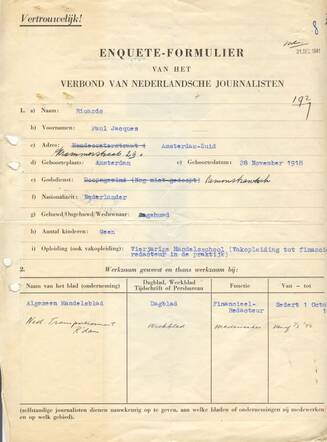 Vertrouwelijk!
8
31 DEC 1941
ENQUETE-FORMULIER
VAN HET
VERBOND VAN NEDERLANDSCHE JOURNALISTEN
1. a) Naam: Ricardo
b) Voornamen: Paul Jacques
c) Adres: Amsterdam-Zuid
d) Geboorteplaats: Amsterdam e) Geboortedatum: 28 November 1918
e) Godsdienst: Doopsgezind (Nog niet gedoopt) Remonstrantsch
f) Nationaliteit: Nederlander
g) Gehuwd/Ongehuwd/Weduwnaar: Ongehuwd
h) Aantal kinderen: Geen
i) Opleiding (ook vakopleiding): Vierjarige Handelsschool (Vakopleiding tot financieel redacteur in de praktijk)
2. Werkzaam geweest en thans werkzaam bij:
Naam van het blad (onderneming) Dagblad, Weekblad Tijdschrift of Persbureau Functie Van – tot
Algemeen Handelsblad Dagblad Financieel-Redacteur Sedert 1 Octo
Ned. R'dam Weekblad Medewerker
(zelfstandige journalisten dienen nauwkeurig op te geven, aan welke bladen of ondernemingen zij medewerken
en op welk gebied).